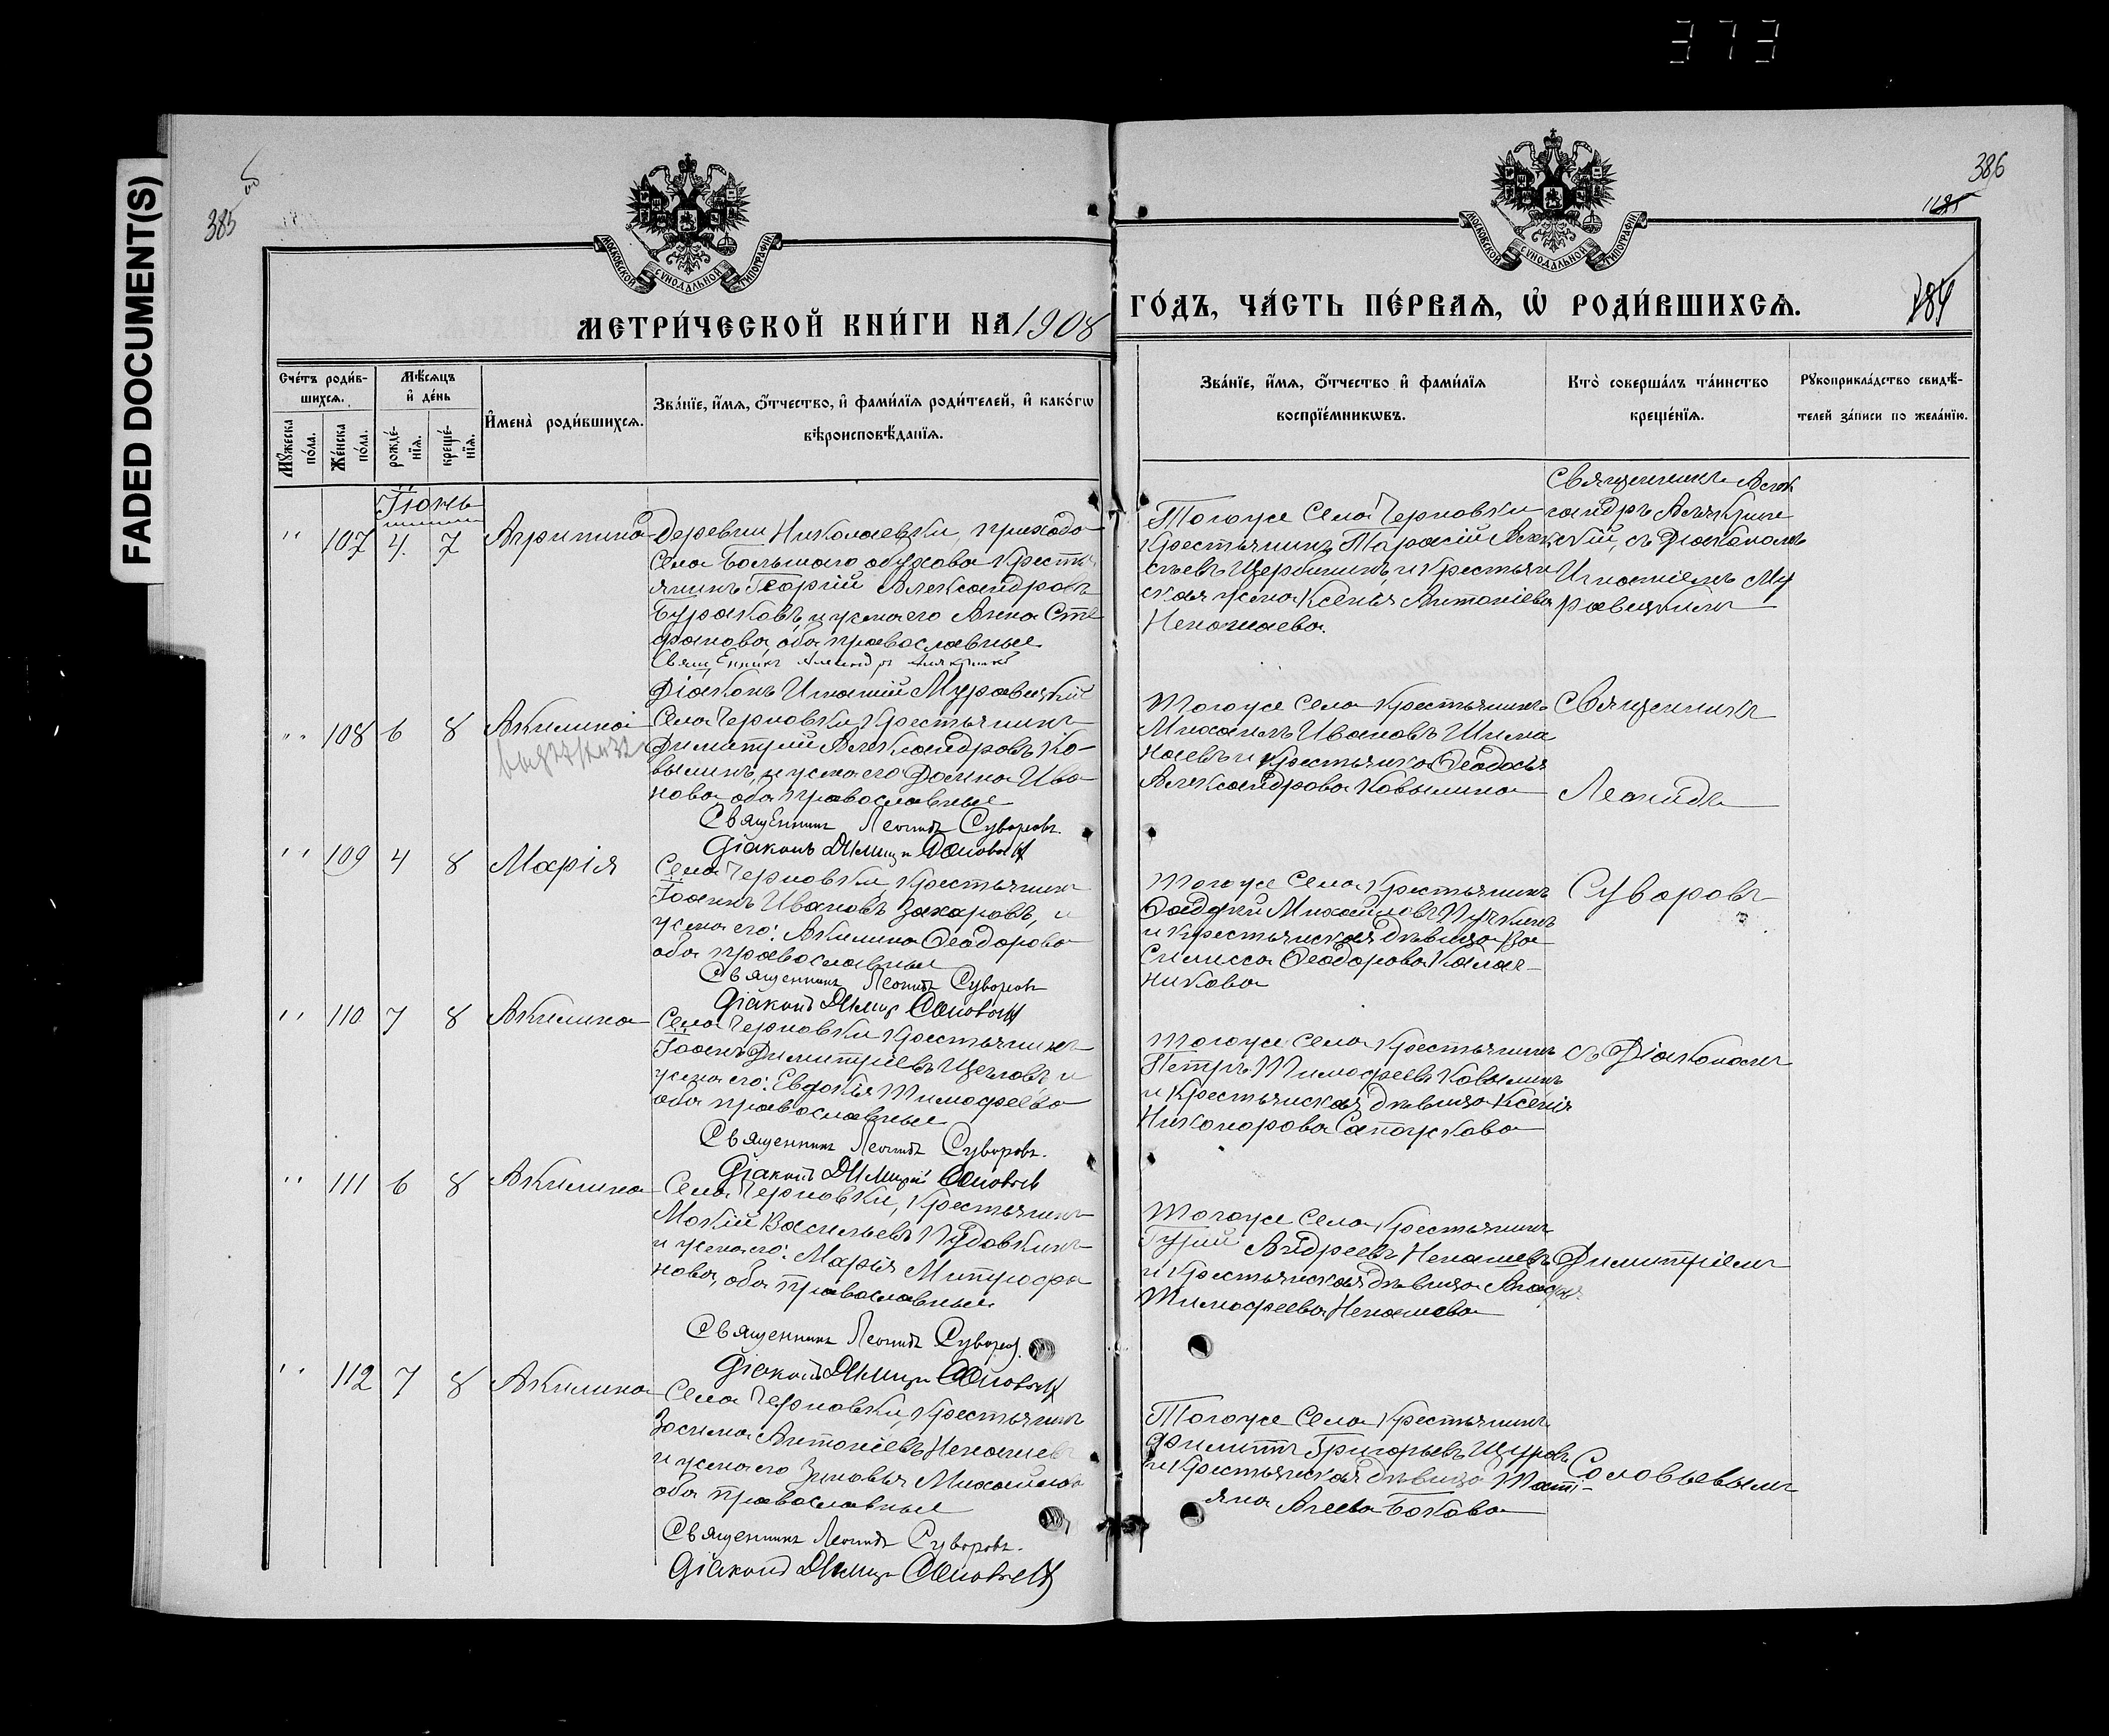 373
FADED DOCUMENT(S)
385
об
386
МОСКОВСКОЙ СѴНОДАЛЬНОЙ ТИПОГРАФІИ
МОСКОВСКОЙ СѴНОДАЛЬНОЙ ТИПОГРАФІИ
МЕТРИ́ЧЕСКОЙ КНИ́ГИ НА 1908 ГО́ДЪ, ЧА́СТЬ ПЕ́РВАѦ, Ѡ҆ РОДИ́ВШИХСѦ.
Сче́тъ роди́в-
шихсѧ.
Мꙋ́жеска по́ла.
Же́нска по́ла.
Мѣ́сѧцъ
и҆ де́нь
рожде́-
нїѧ.
креще́-
нїѧ.
И҆мена̀ роди́вшихсѧ.
Зва́нїе, и҆́мѧ, ѻ҆́тчество, и҆ фами́лїѧ роди́телей, и҆ како́гѡ
вѣроисповѣ́данїѧ.
Зва́нїе, и҆́мѧ, ѻ҆́тчество и҆ фами́лїѧ
воспрїе́мникѡвъ.
Кто̀ соверша́лъ та́инство
креще́нїѧ.
Рꙋкоприкла́дство свидѣ́-
телей за́писи по жела́нїю.
Іюнь
" 107 4. 7 Агрипина
Деревни Николаевки, прихода
села Большаго
Кресть
янинъ Георгій Александровъ
Бураковъ, и жена его Анна Сте
фанова, оба православные
Діаконъ Игнатій Муравскій
Тогоже Села Черновки
Крестьянинъ Тарасій Алек
сѣевъ Щербининъ, и Крестьян
ская жена Ксенія Антоніева
Ненашаева.
Священникъ Алек
сандръ
скій, съ Діакономъ
Игнатіемъ Му
равскимъ
" 108 6 8 Акилина
Села Черновки, Крестьянинъ
Димитрий Александровъ Ко-
вылинъ, и жена его Домна Ива
нова оба православные
Священникъ Леонидъ Суворовъ.
Діаконъ Димитрій Соловьевъ
Тогоже Села Крестьянинъ
Михаилъ Ивановъ Шима
наевъ и Крестьянка Ѳеодосія
Александрова Ковылина
Священникъ
Леонидъ
" 109 4 8 Марія
Села Черновки, Крестьянинъ
Іоаннъ Ивановъ Захаровъ, и
жена его: Акилина Ѳеодорова
оба православные
Священникъ Леонидъ Суворовъ
Діаконъ Димитр Соловьевъ
Тогоже Села Крестьянинъ
Ѳаддей Михаиловъ Пучкинъ
и крестьянская дѣвица Ва
силисса Ѳеодорова Калаш-
никова
Суворовъ
" 110 7 8 Акилина
Села Черновки Крестьянинъ
Іоаннъ Димитріевъ Щегловъ и
жена его: Евдокія Тимофеева
оба православные
Священникъ Леонидъ Суворовъ.
Діаконъ Димитрій Соловьевъ
Тогоже села Крестьянинъ
Петръ Тимофеевъ Ковылинъ
и Крестьянская дѣвица Ксенія
Никонорова Сапожкова
съ Діакономъ
" 111 6 8 Акилина
Села Черновки, Крестьянинъ
Мокій Васильевъ Пудовкинъ
и жена его: Марія Митрофа
нова, оба православные
Священникъ Леонидъ Суворов.
Діаконъ Димитр Соловьевъ
Тогоже Села Крестьянинъ
Гурій Андреевъ Ненашевъ
и Крестьянская дѣвица Агафья
Тимофеева Ненашева
Димитріемъ
" 112 7 8 Акилина
Села Черновки, Крестьянинъ
Зосима Антоніевъ Ненашевъ
и жена его Зиновья Михайлова
оба православные
Священникъ Леонидъ Суворовъ.
Діаконъ Димитр Соловьевъ
Тогоже Села Крестьянинъ
Филиппъ Григорьевъ Щуровъ
и Крестьянская дѣвица Тать-
яна Бокова
Соловьевымъ